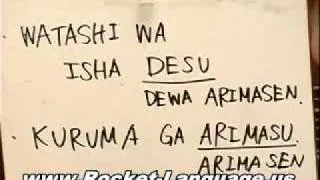 WATASHI WA
ISHA DESU
DEWA ARIMASEN.
· KURUMA GA ARIMASU.
ARIMASEN
www.Rocket-Language.us